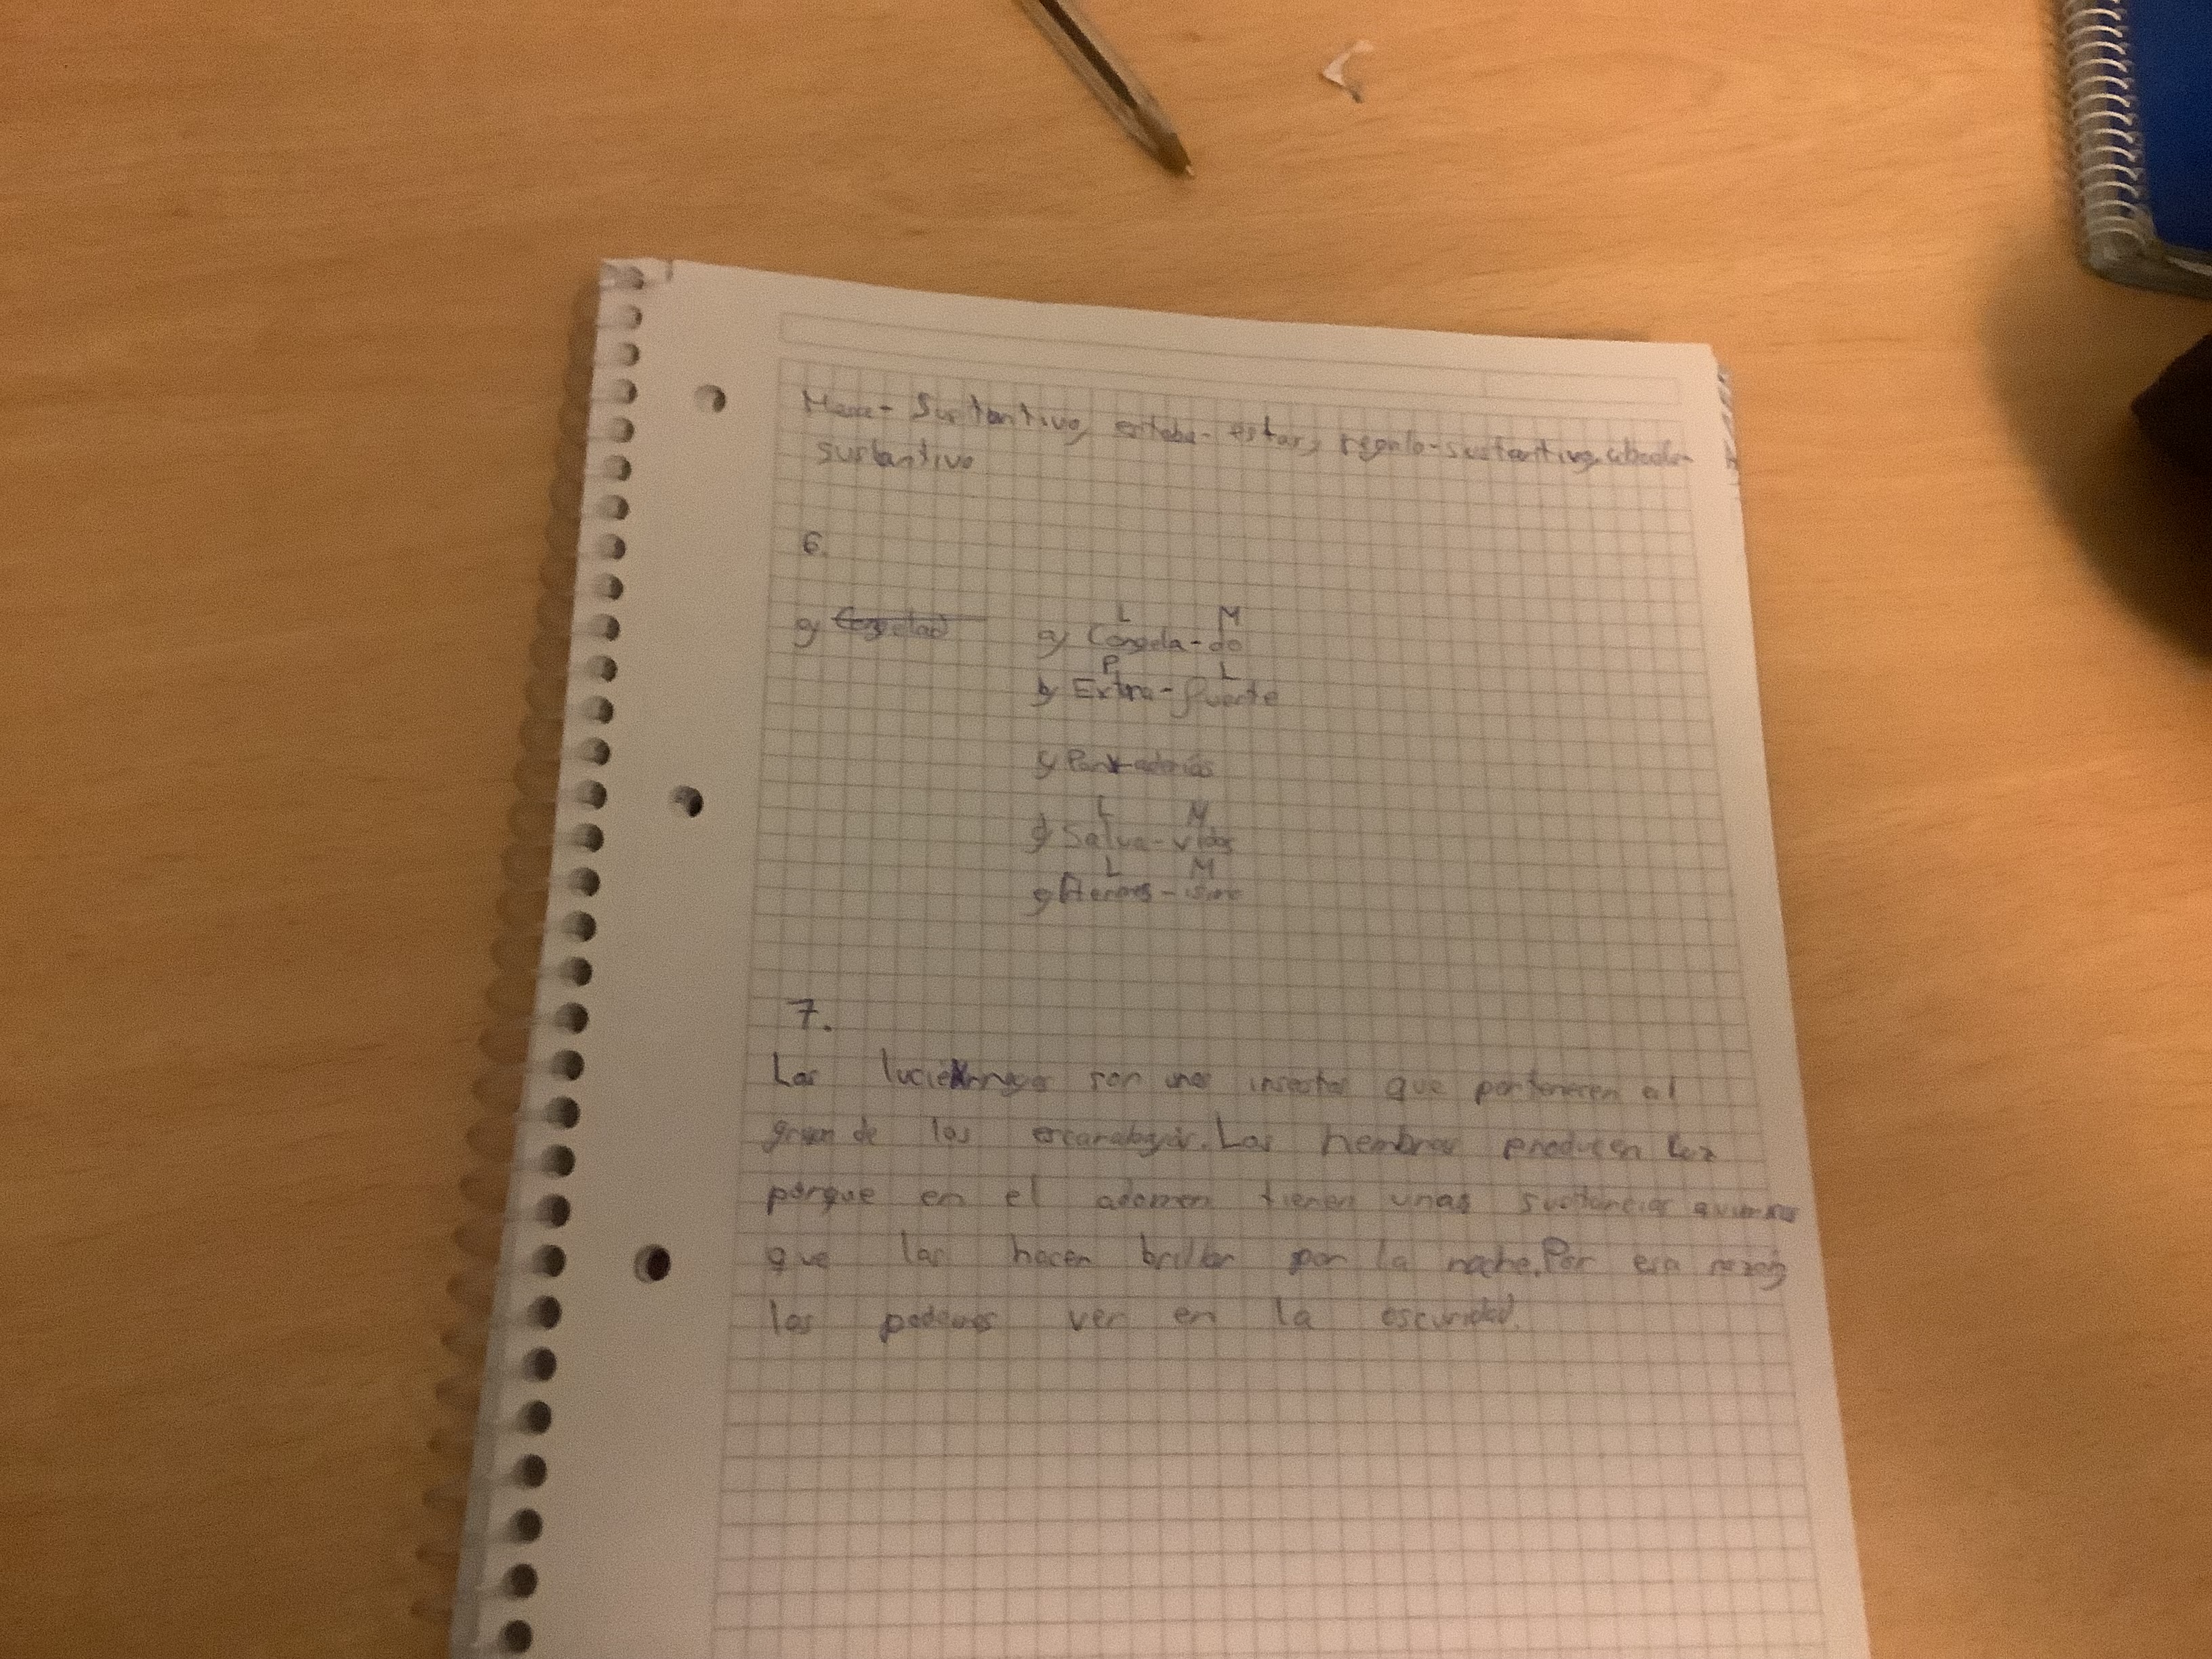 Sustantivo, estaba- estar, regalo-sustantivo,
sustantivo
6.
L M
a) Congelad a) Congela-do
P L
b) Extra-fuerte
c)
L M
d) Salva-vidas
L M
e) -ismo
7.
Las son unos insectos que pertenecen al
de los escarabajos. Las hembras producen luz
porque en el adomen tienen unas sustancias
que las hacen brillar por la noche. Por esa razón,
las podemos ver en la oscuridad.